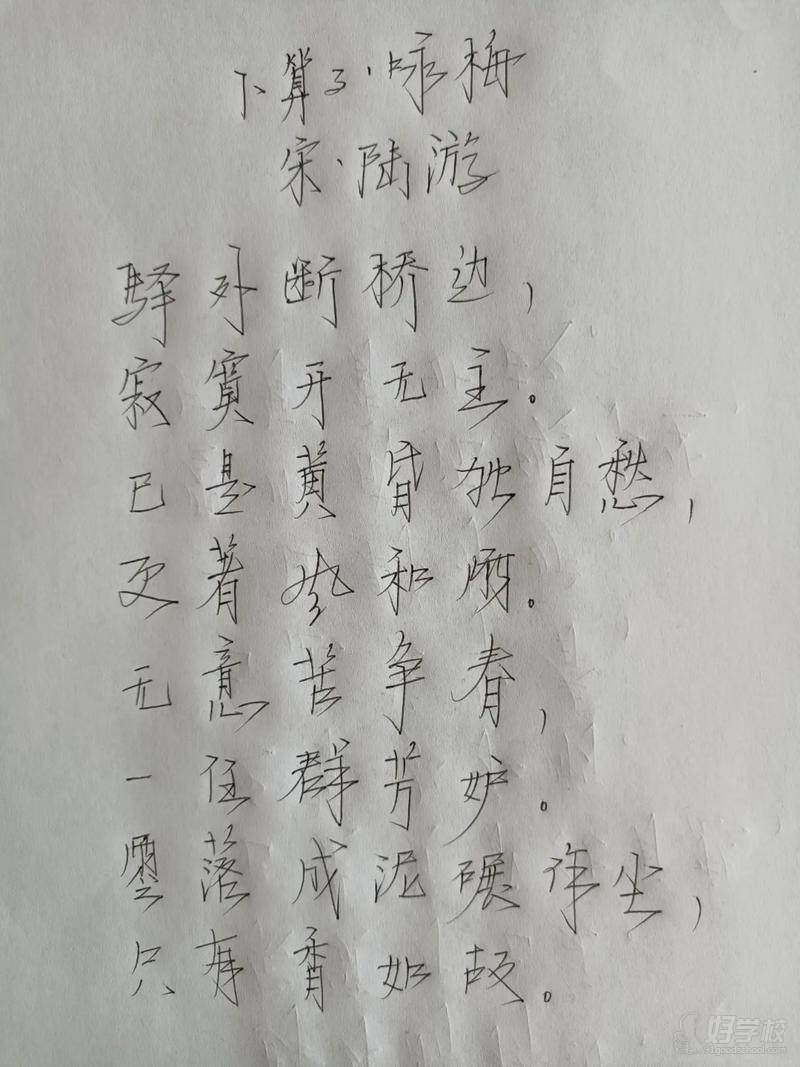 卜算子·咏梅
宋·陆游
驿外断桥边，
寂寞开无主。
已是黄昏独自愁，
更著风和雨。
无意苦争春，
一任群芳妒。
零落成泥碾作尘，
只有香如故。
好学校
91goodschool.com